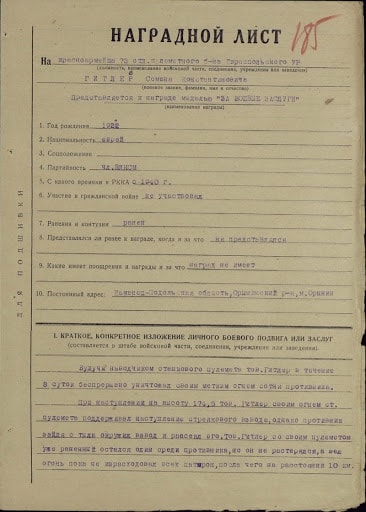 НАГРАДНОЙ ЛИСТ
185
На красноармейца 73 отд.пулеметного б-на Тираспольского УР
(должность, наименование войсковой части, соединения, учреждения или заведения)
ГИТЛЕР Семена Константиновича
(военное звание, фамилия, имя и отчество)
Представляется к награде медалью "ЗА БОЕВЫЕ ЗАСЛУГИ"
(наименование награды)
1. Год рождения 1922
2. Национальность еврей
3. Соцположение
4. Партийность чл.ВЛКСМ
5. С какого времени в РККА с 1940 г.
6. Участие в гражданской войне не участвовал
7. Ранения и контузия ранен
8. Представлялся ли ранее к награде, когда и за что не представлялся
9. Какие имеет поощрения и награды и за что наград не имеет
10. Постоянный адрес: Каменец-Подольская область, р-н, м.Орынин
ДЛЯ ПОДШИВКИ
I. КРАТКОЕ, КОНКРЕТНОЕ ИЗЛОЖЕНИЕ ЛИЧНОГО БОЕВОГО ПОДВИГА ИЛИ ЗАСЛУГ
(составляется в штабе войсковой части, соединения, учреждения или заведения).
Будучи наводчиком станкового пулемета тов.Гитлер в течении
8 суток беспрерывно уничтожал своим метким огнем сотни противника.
При наступлении на высоту 174,5 тов. Гитлер своим огнем ст.
пулемета поддерживал наступление стрелкового взвода, однако противник
зайдя с тыла окружил взвод и рассеял его. Тов.Гитлер со своим пулеметом
уже раненый остался один среди противника, но он не растерялся, а вел
огонь пока не израсходовал всех патронов, после чего на расстоянии 10 км.